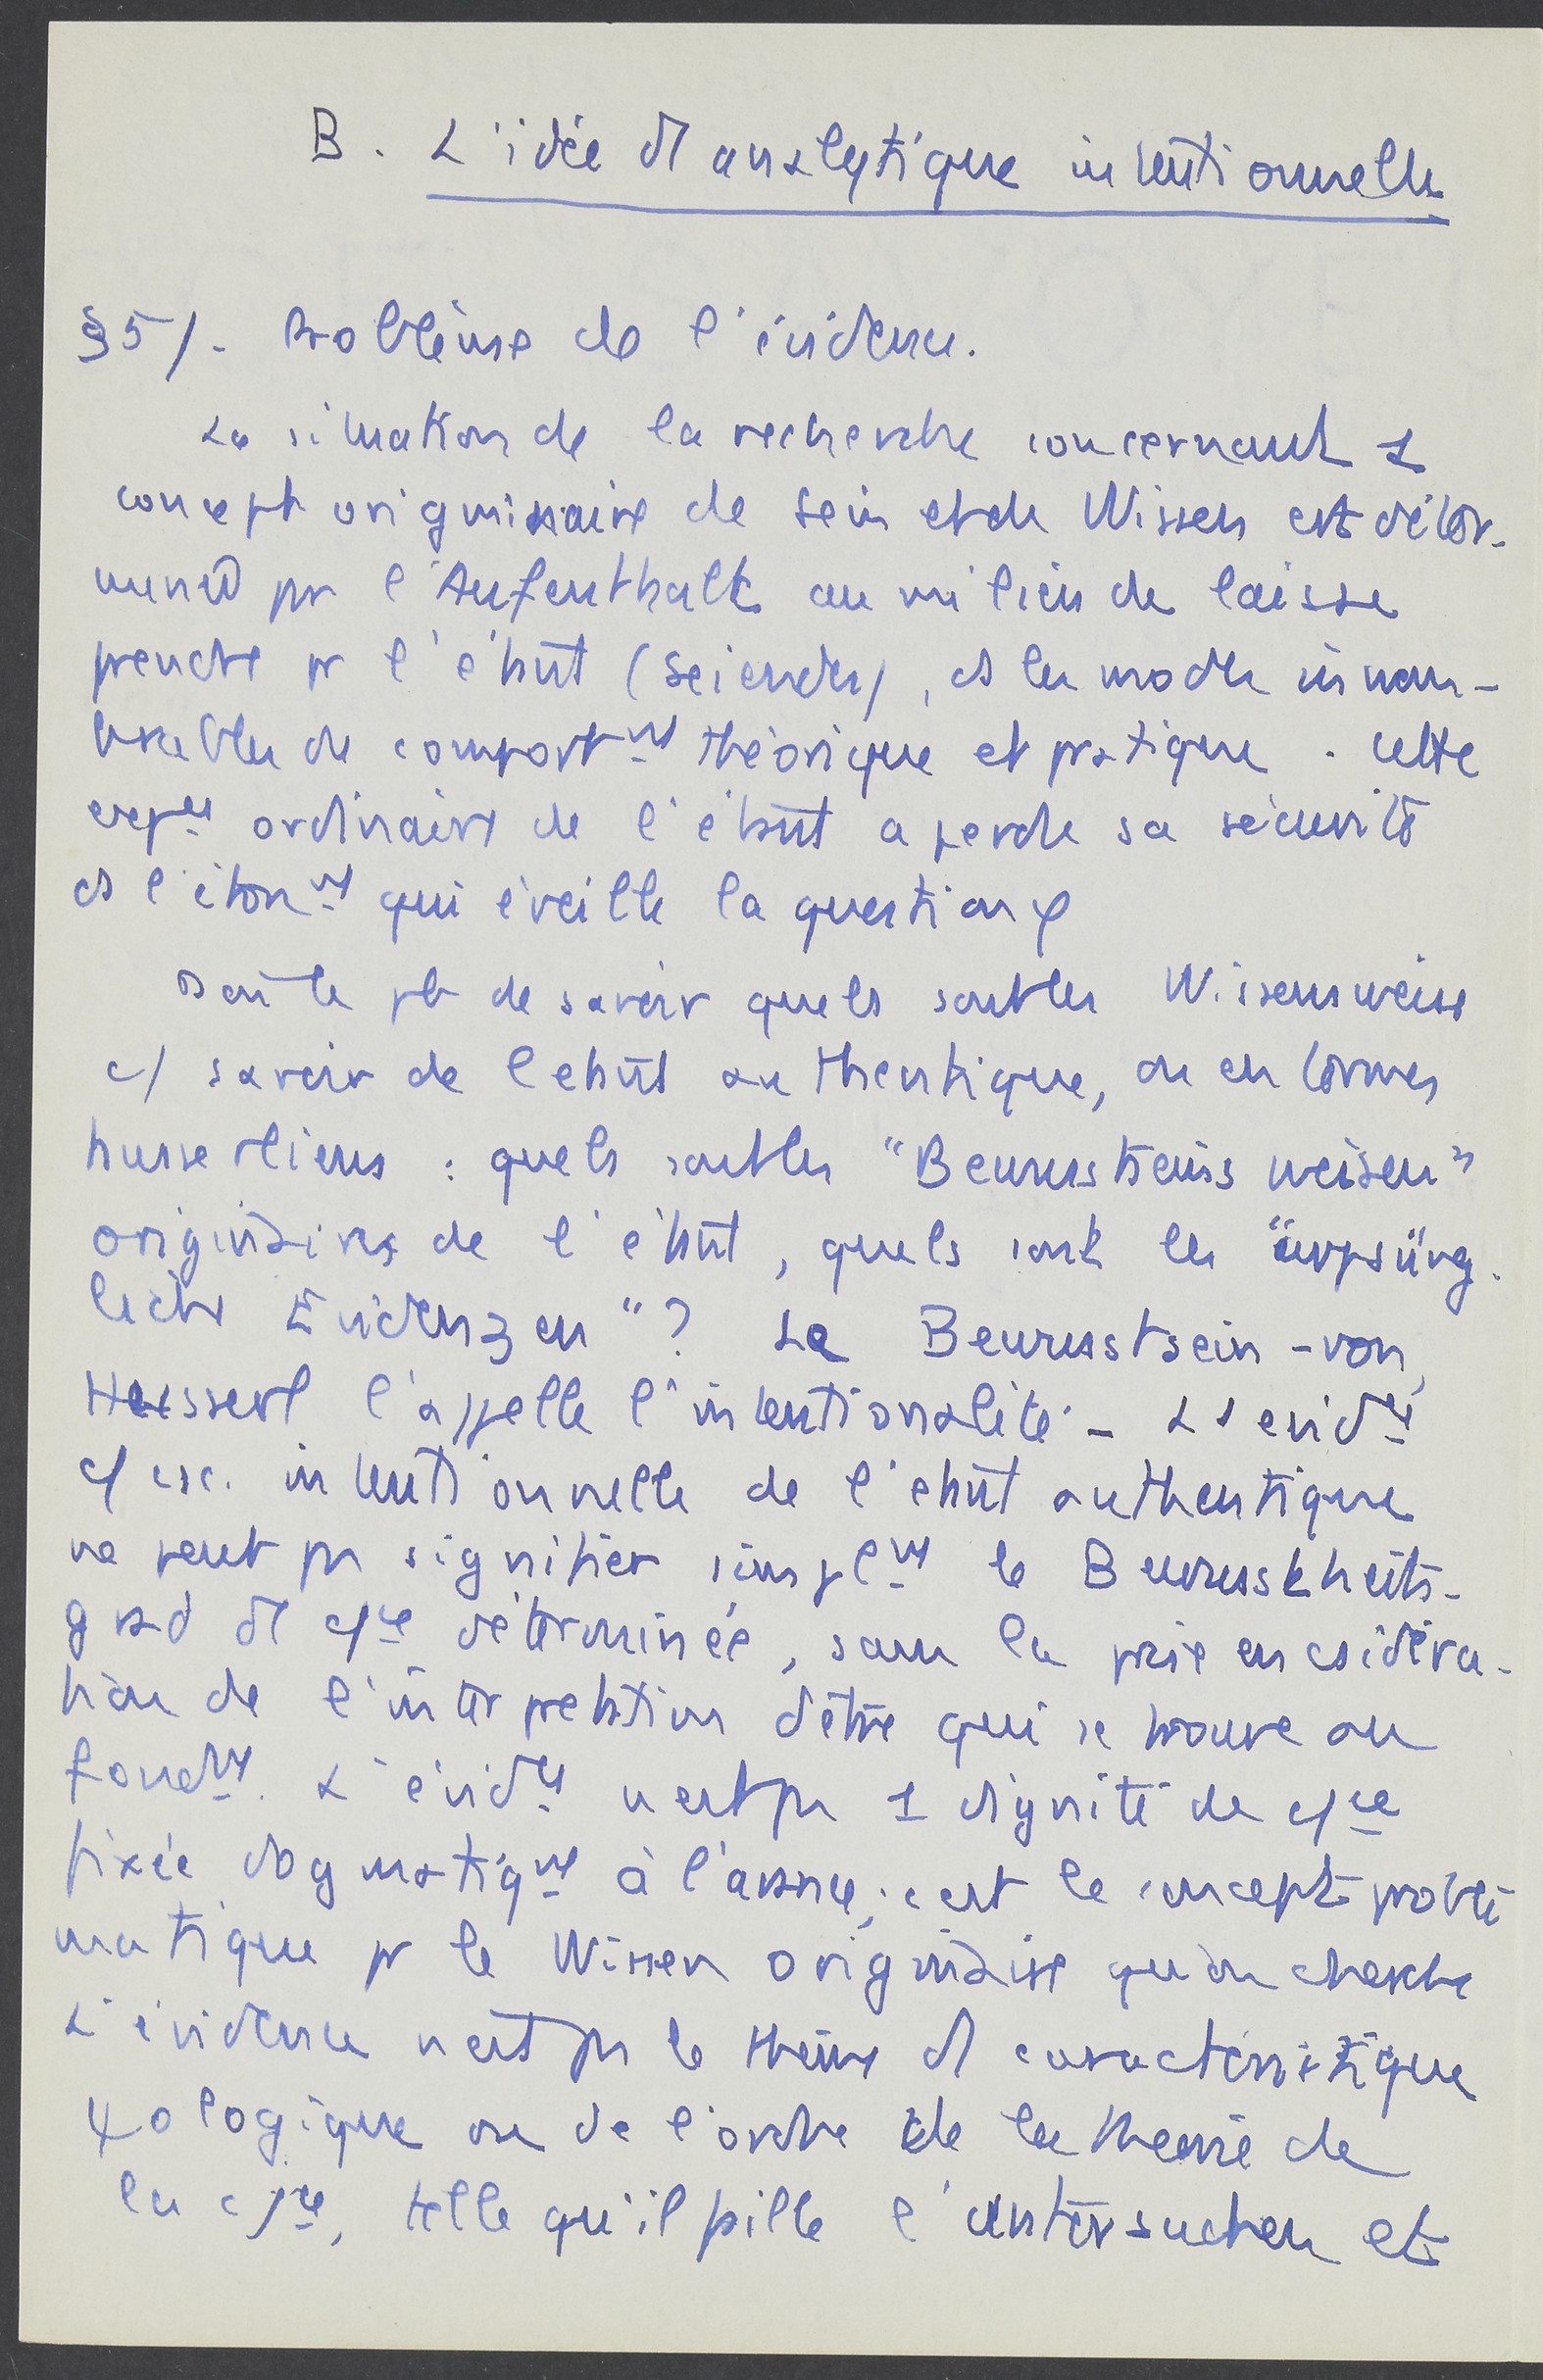 B. L'idée d'analytique intentionnelle
§5/. Problème de l'évidence.
La situation de la recherche concernant 1
concept origininaire de Sein et de Wissen est déter-
miné par l'Aufenthalt au milieu de
pr l'étant (Seiendes), ds les modes innom-
brables de comportnt théorique et pratique. Cette
expce ordinaire de l'étant a perdu sa sécurité
ds l'étonnt qui éveille la question φ
D'où le pb de savoir quels sont les Wissensweise
c/ savoir de l'étant authentique, ou en termes
husserliens : quels sont les "Bewusstseinsweisen"
originaires de l'étant, quels sont les "ürpsüng-
liche Evidenzen" ? Le Bewusstsein-von,
Husserl l'appelle l'intentionalité - L'évidce
c/ csc. intentionnelle de l'étant authentique
ne peut pas signifier simplnt le Bewusstheits-
grad d' cpce déterminée, sans la prise en csidéra-
tion de l'interprétation d'être qui se trouve au
fondnt. L'évidce n'est pas 1 dignité de cpce
fixée dogmatiqnt à l'avance, c'est le concept problé-
matique pr le Wissen originaire qu'on cherche
L'évidence n'est pas le thème d' caractéristique
ψologique ou de l'ordre de la théorie de
la cpce, telle qu'il pille l'Untersuchen et